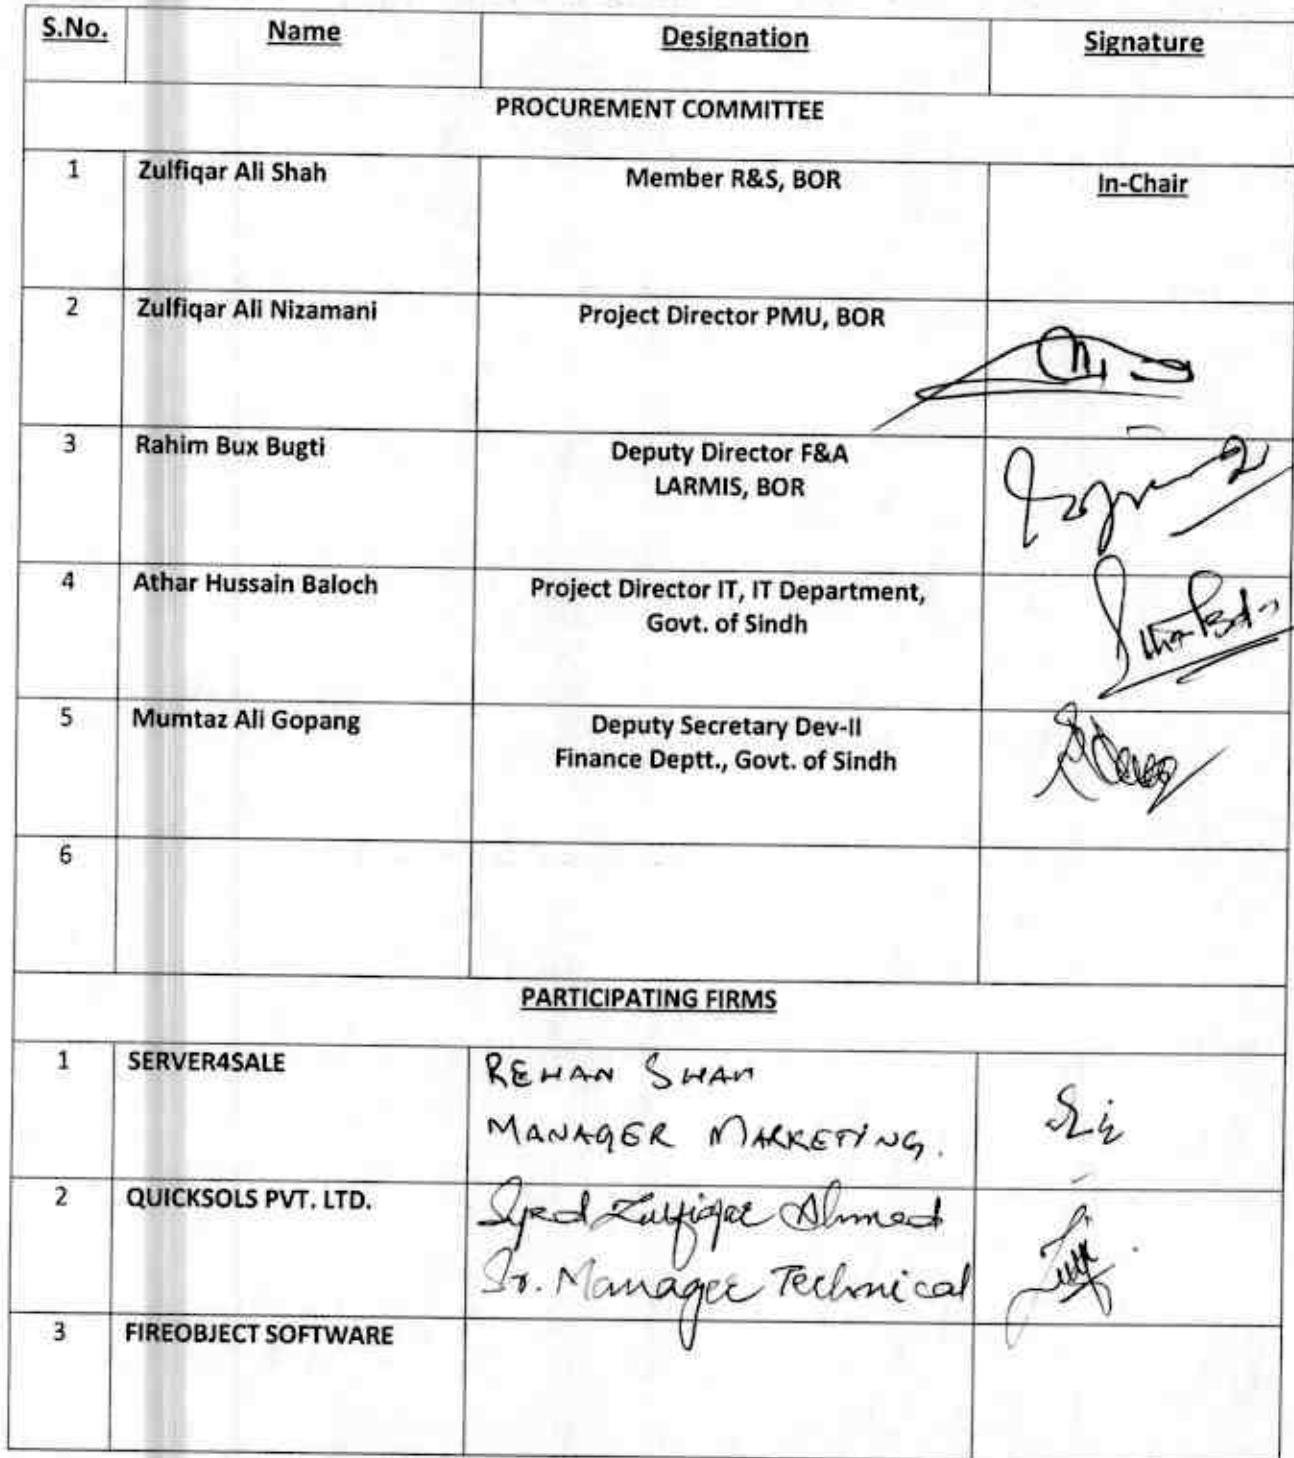 S.No. Name Designation Signature
PROCUREMENT COMMITTEE
1 Zulfiqar Ali Shah Member R&S, BOR In-Chair
2 Zulfiqar Ali Nizamani Project Director PMU, BOR
3 Rahim Bux Bugti Deputy Director F&A
LARMIS, BOR
4 Athar Hussain Baloch Project Director IT, IT Department,
Govt. of Sindh
5 Mumtaz Ali Gopang Deputy Secretary Dev-II
Finance Deptt., Govt. of Sindh
6
PARTICIPATING FIRMS
1 SERVER4SALE REHAN SHAH
MANAGER MARKETING.
2 QUICKSOLS PVT. LTD. Syed Zulfiqar Ahmed
Sr. Manager Technical
3 FIREOBJECT SOFTWARE